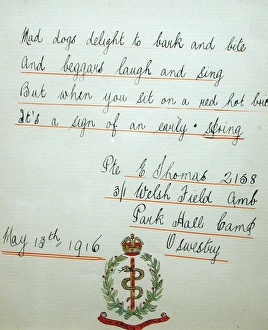 Mad dogs delight to bark and bite
And beggars laugh and sing
But when you sit on a red hot bric
It's a sign of an early · Spring
Pte E Thomas 2168
3/1 Welsh Field Amb
Park Hall Camp
Oswestry
May 13th, 1916